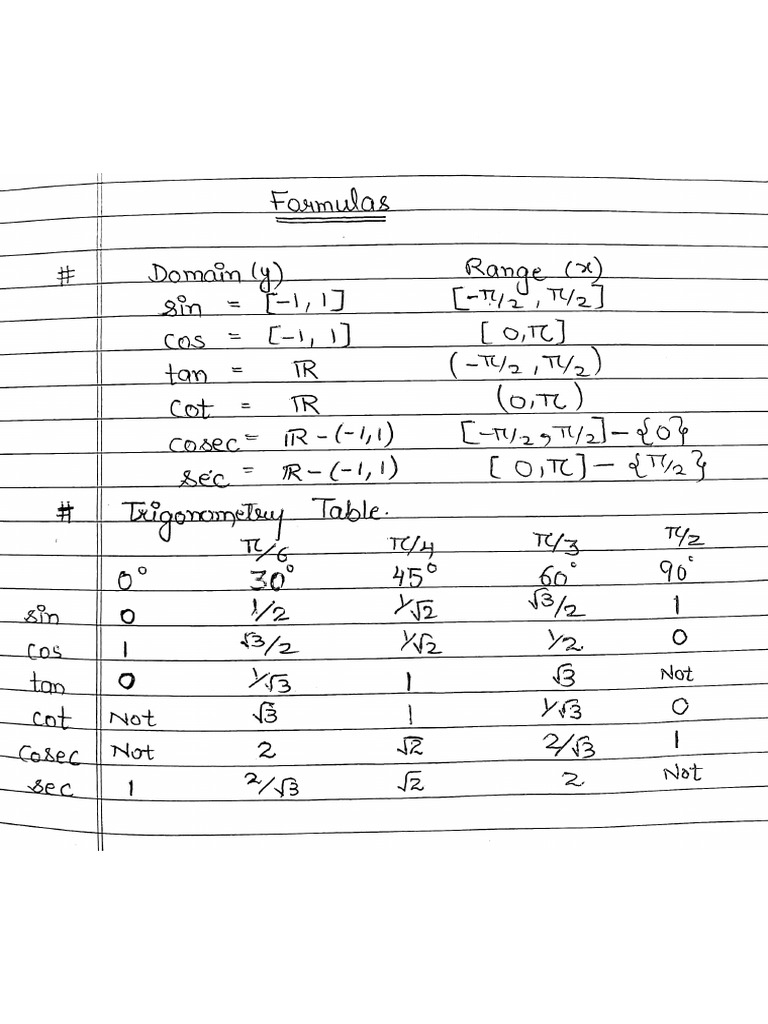 Formulas
# Domain (y) Range (x)
sin = [-1, 1] [-π/2, π/2]
cos = [-1, 1] [0, π]
tan = ℝ (-π/2, π/2)
cot = ℝ (0, π)
cosec = ℝ - (-1, 1) [-π/2, π/2] - {0}
sec = ℝ - (-1, 1) [0, π] - {π/2}
# Trigonometry Table.
π/6 π/4 π/3 π/2
0° 30° 45° 60° 90°
sin 0 1/2 1/√2 √3/2 1
cos 1 √3/2 1/√2 1/2 0
tan 0 1/√3 1 √3 Not
cot Not √3 1 1/√3 0
cosec Not 2 √2 2/√3 1
sec 1 2/√3 √2 2 Not